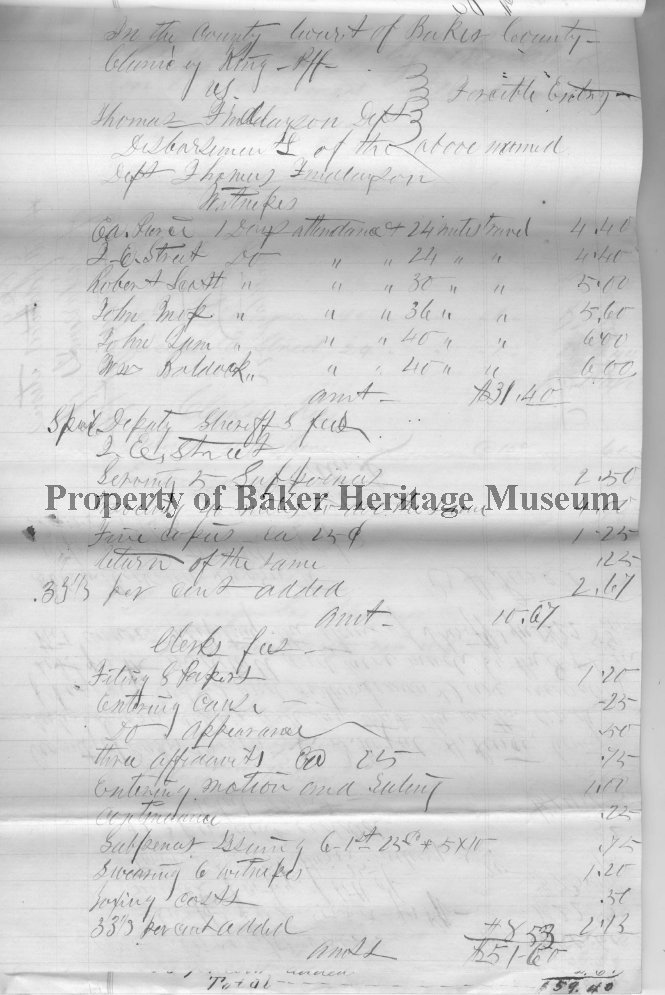 In the County Court of Baker County
King - Plff -
vs.
Forcible Entry
Thomas Findlayson Deft
Disbursments of the above named
Deft Thomas Findlayson
Witnesses
Ed. Pierce 1 Days attendance & 24 miles travel 4.40
J. E. Street Do " " 24 " " 4.40
Robert " " " 30 " " 5.00
John " " " 36 " " 5.60
John " " " 40 " " 6.00
Wm Baldock " " " 40 " " 6.00
amt - $31.40
Deputy Sheriffs fees
J. E. Street
Serving 5 Subpoenas 2.50
Property of Baker Heritage Museum
Five copies ea 25¢ 1.25
Return of the same .25
.33⅓ per cent added 2.67
amt - 10.67
Clerks fees -
Filing 8 Papers 1.20
Entering Cause - .25
Do appearance .50
three affidavits Ea 25 .75
Entering motion and Ruling 1.00
Continuance .25
Subpenas Issuing 6 - 1st 25 & 5x10 .75
Swearing 6 witnesses 1.20
Taxing costs .50
33⅓ per cent added 2.13
$8.53
amt $51.60
Total $59.40